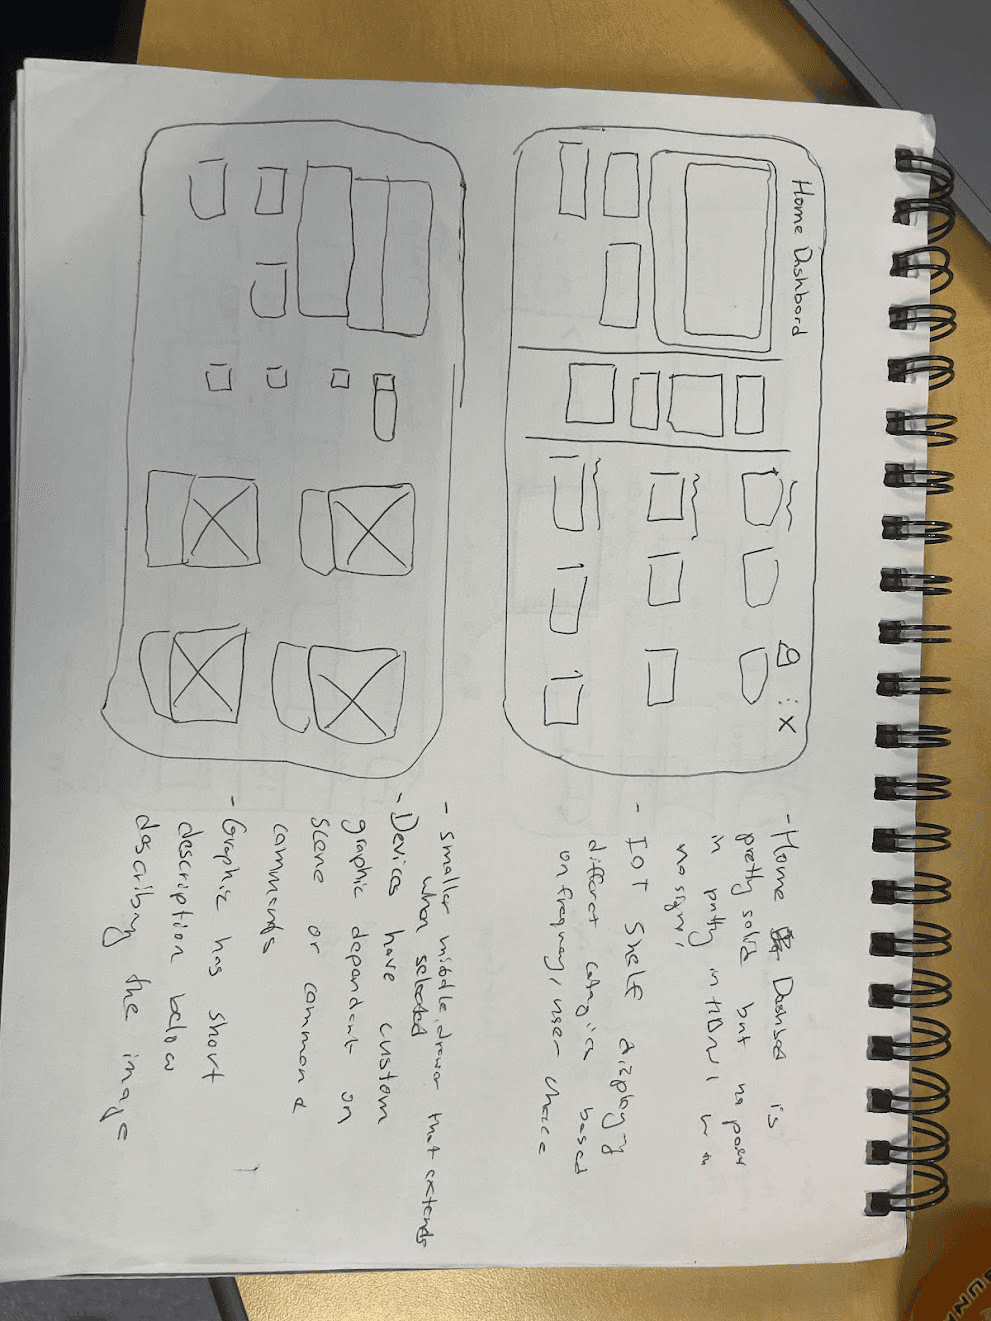 Home Dashbord
X
- Home Dashbod is
pretty solid but no power
in putty in HDMI 1 w
no signl
- IoT Shelf displayg
differet categies based
on frequency, user choice
- smaller middle drawer that extends
when selected
- Devices have custom
graphic dependent on
scene or command
commands
- Graphic has short
description below
describing the image
SUN